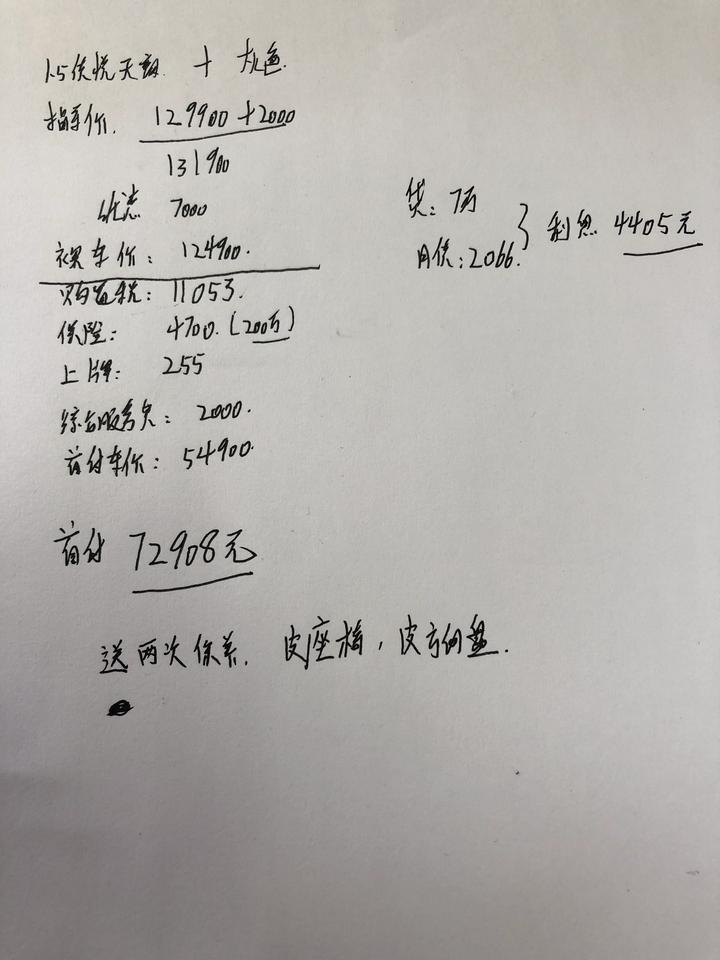 1.5优悦天窗 + 大色
指导价. 129900+2000
131900
优惠 7000
裸车价: 124900.
购置税: 11053.
保险: 4700. (200万)
上牌: 255
综合服务费: 2000.
首付车价: 54900.
首付 72908元
送两次保养. 皮座椅, 皮方向盘.
贷: 7万
月供: 2066. } 利息 4405元